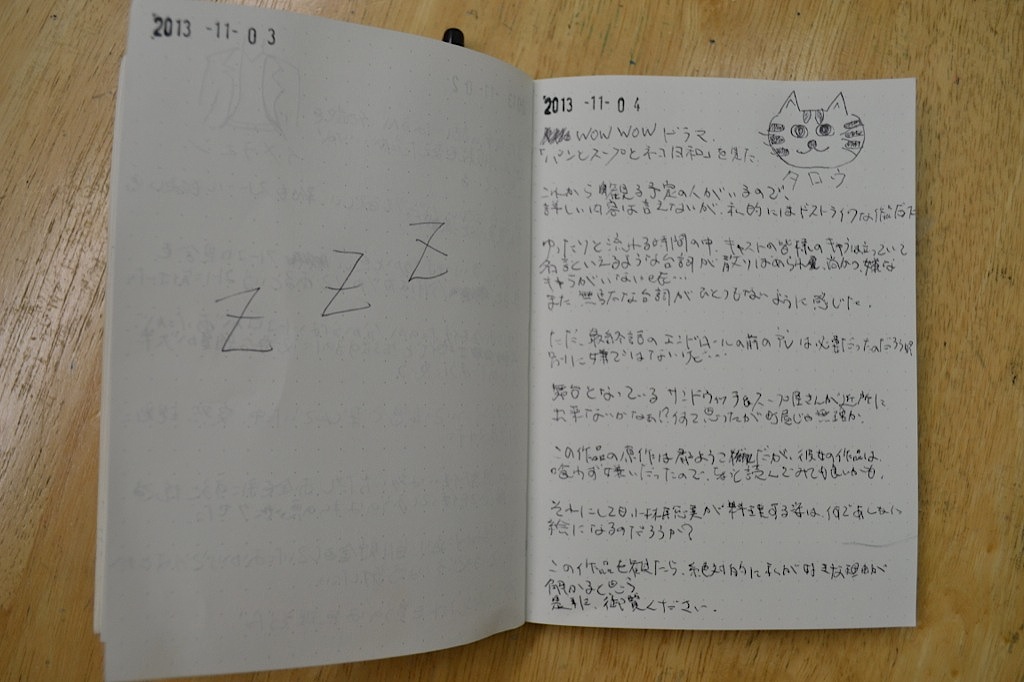 2013 -11- 03
Z Z Z
2013 -11- 04
WOWWOWドラマ
「パンとスープとネコ日和」を見た
タロウ
これから観る予定の人がいるので、
詳しい内容は言えないが、私的にはドストライクな作品だった
ゆったりと流れる時間の中、キャストの皆様のキャラは立っていて
名言といえるような台詞が散りばめられ、尚かつ嫌な
キャラがいない
また無駄な台詞がひとつもないように感じた。
ただ、最終話のエンドロールの前の は必要だったのだろうか
別に嫌ではないけど…
舞台となっているサンドウィッチ&スープ屋さんが近所に
出来ないかなぁ!?何て思ったが
この作品の原作は群ようこ だが、彼女の作品は、
喰わず嫌いだったので、 読んでみても良いかも。
それにしても小林聡美が料理する姿は、何であんなに
絵になるのだろうか?
この作品を観たら、絶対的に私が好きな理由が
何かると思う
是非に、御覧ください。